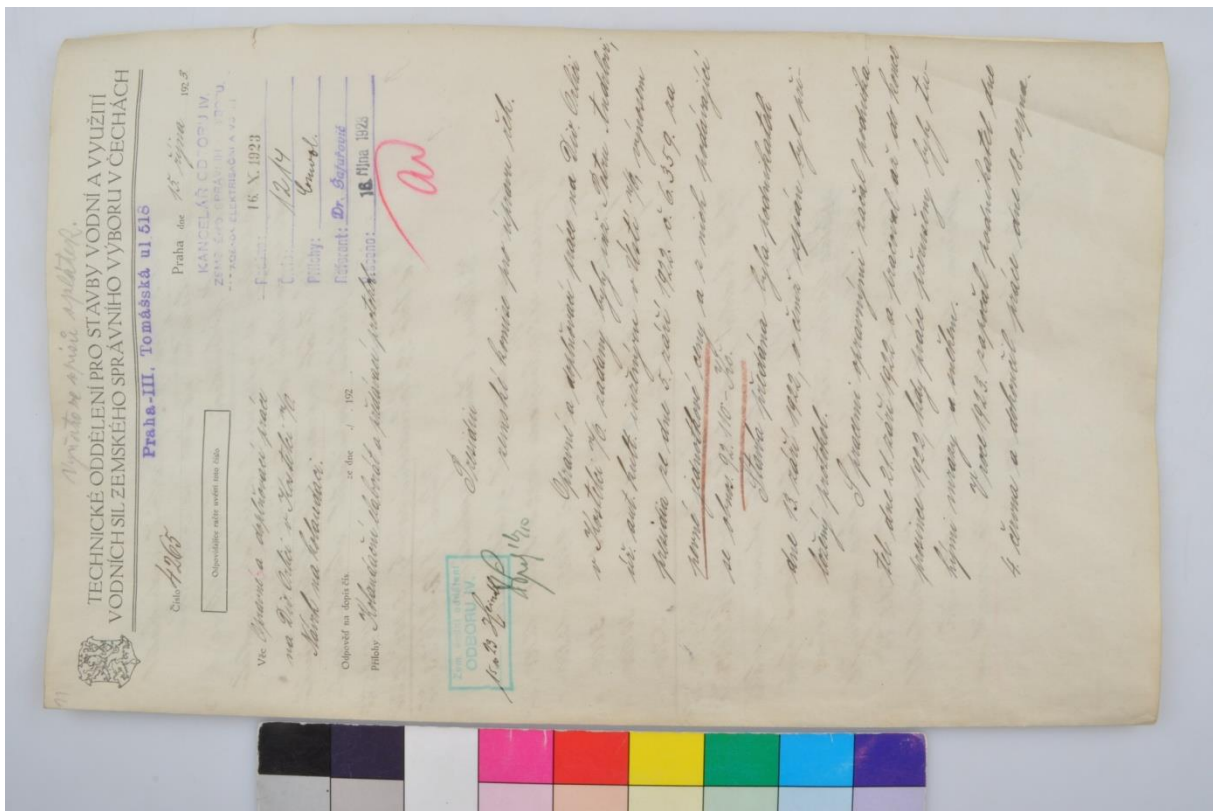 TECHNICKÉ ODDĚLENÍ PRO STAVBY VODNÍ A VYUŽITÍ
VODNÍCH SIL ZEMSKÉHO SPRÁVNÍHO VÝBORU V ČECHÁCH
Praha-III. Tomášská ul 518
Číslo 4265
Praha dne 15 října 1923
Odpovídajíce račte uvésti toto číslo
KANCELÁŘ ODBORU IV.
16. X. 1923
1214
Přílohy:
Referent: Dr. Šafařovič
18. října 1923
Věc: Upravné a doplňovací práce
na Div. Orlici v Kostelci n/O
Návrh na kolaudaci.
Odpověď na dopis čís. ze dne 192
Přílohy Kolaudační elaborát a
ODBORU IV.
16/10
Presidiu
zemské komise pro úpravu řek.
Upravné a doplňovací práce na Div. Orlici
v Kostelci n/O. zadány byly inž. Petru
úř. aut. kult. inženýru v Ústí n/O. výnosem
presidia ze dne 5. září 1922 č. 6.359. za
pevné jednotkové ceny a z nich
se obnos 92.110
Stavba předána byla podnikateli
dne 13. září 1922, o čemž sepsán byl při-
ložený protokol.
S pracemi započal podnika-
tel dne 21. září 1922 a pracoval až do konce
prosince 1922, kdy práce přerušeny byly tu-
hými mrazy a sněhem.
V roce 1923 započal podnikatel dne
4. června a dokončil práce dne 18. srpna.